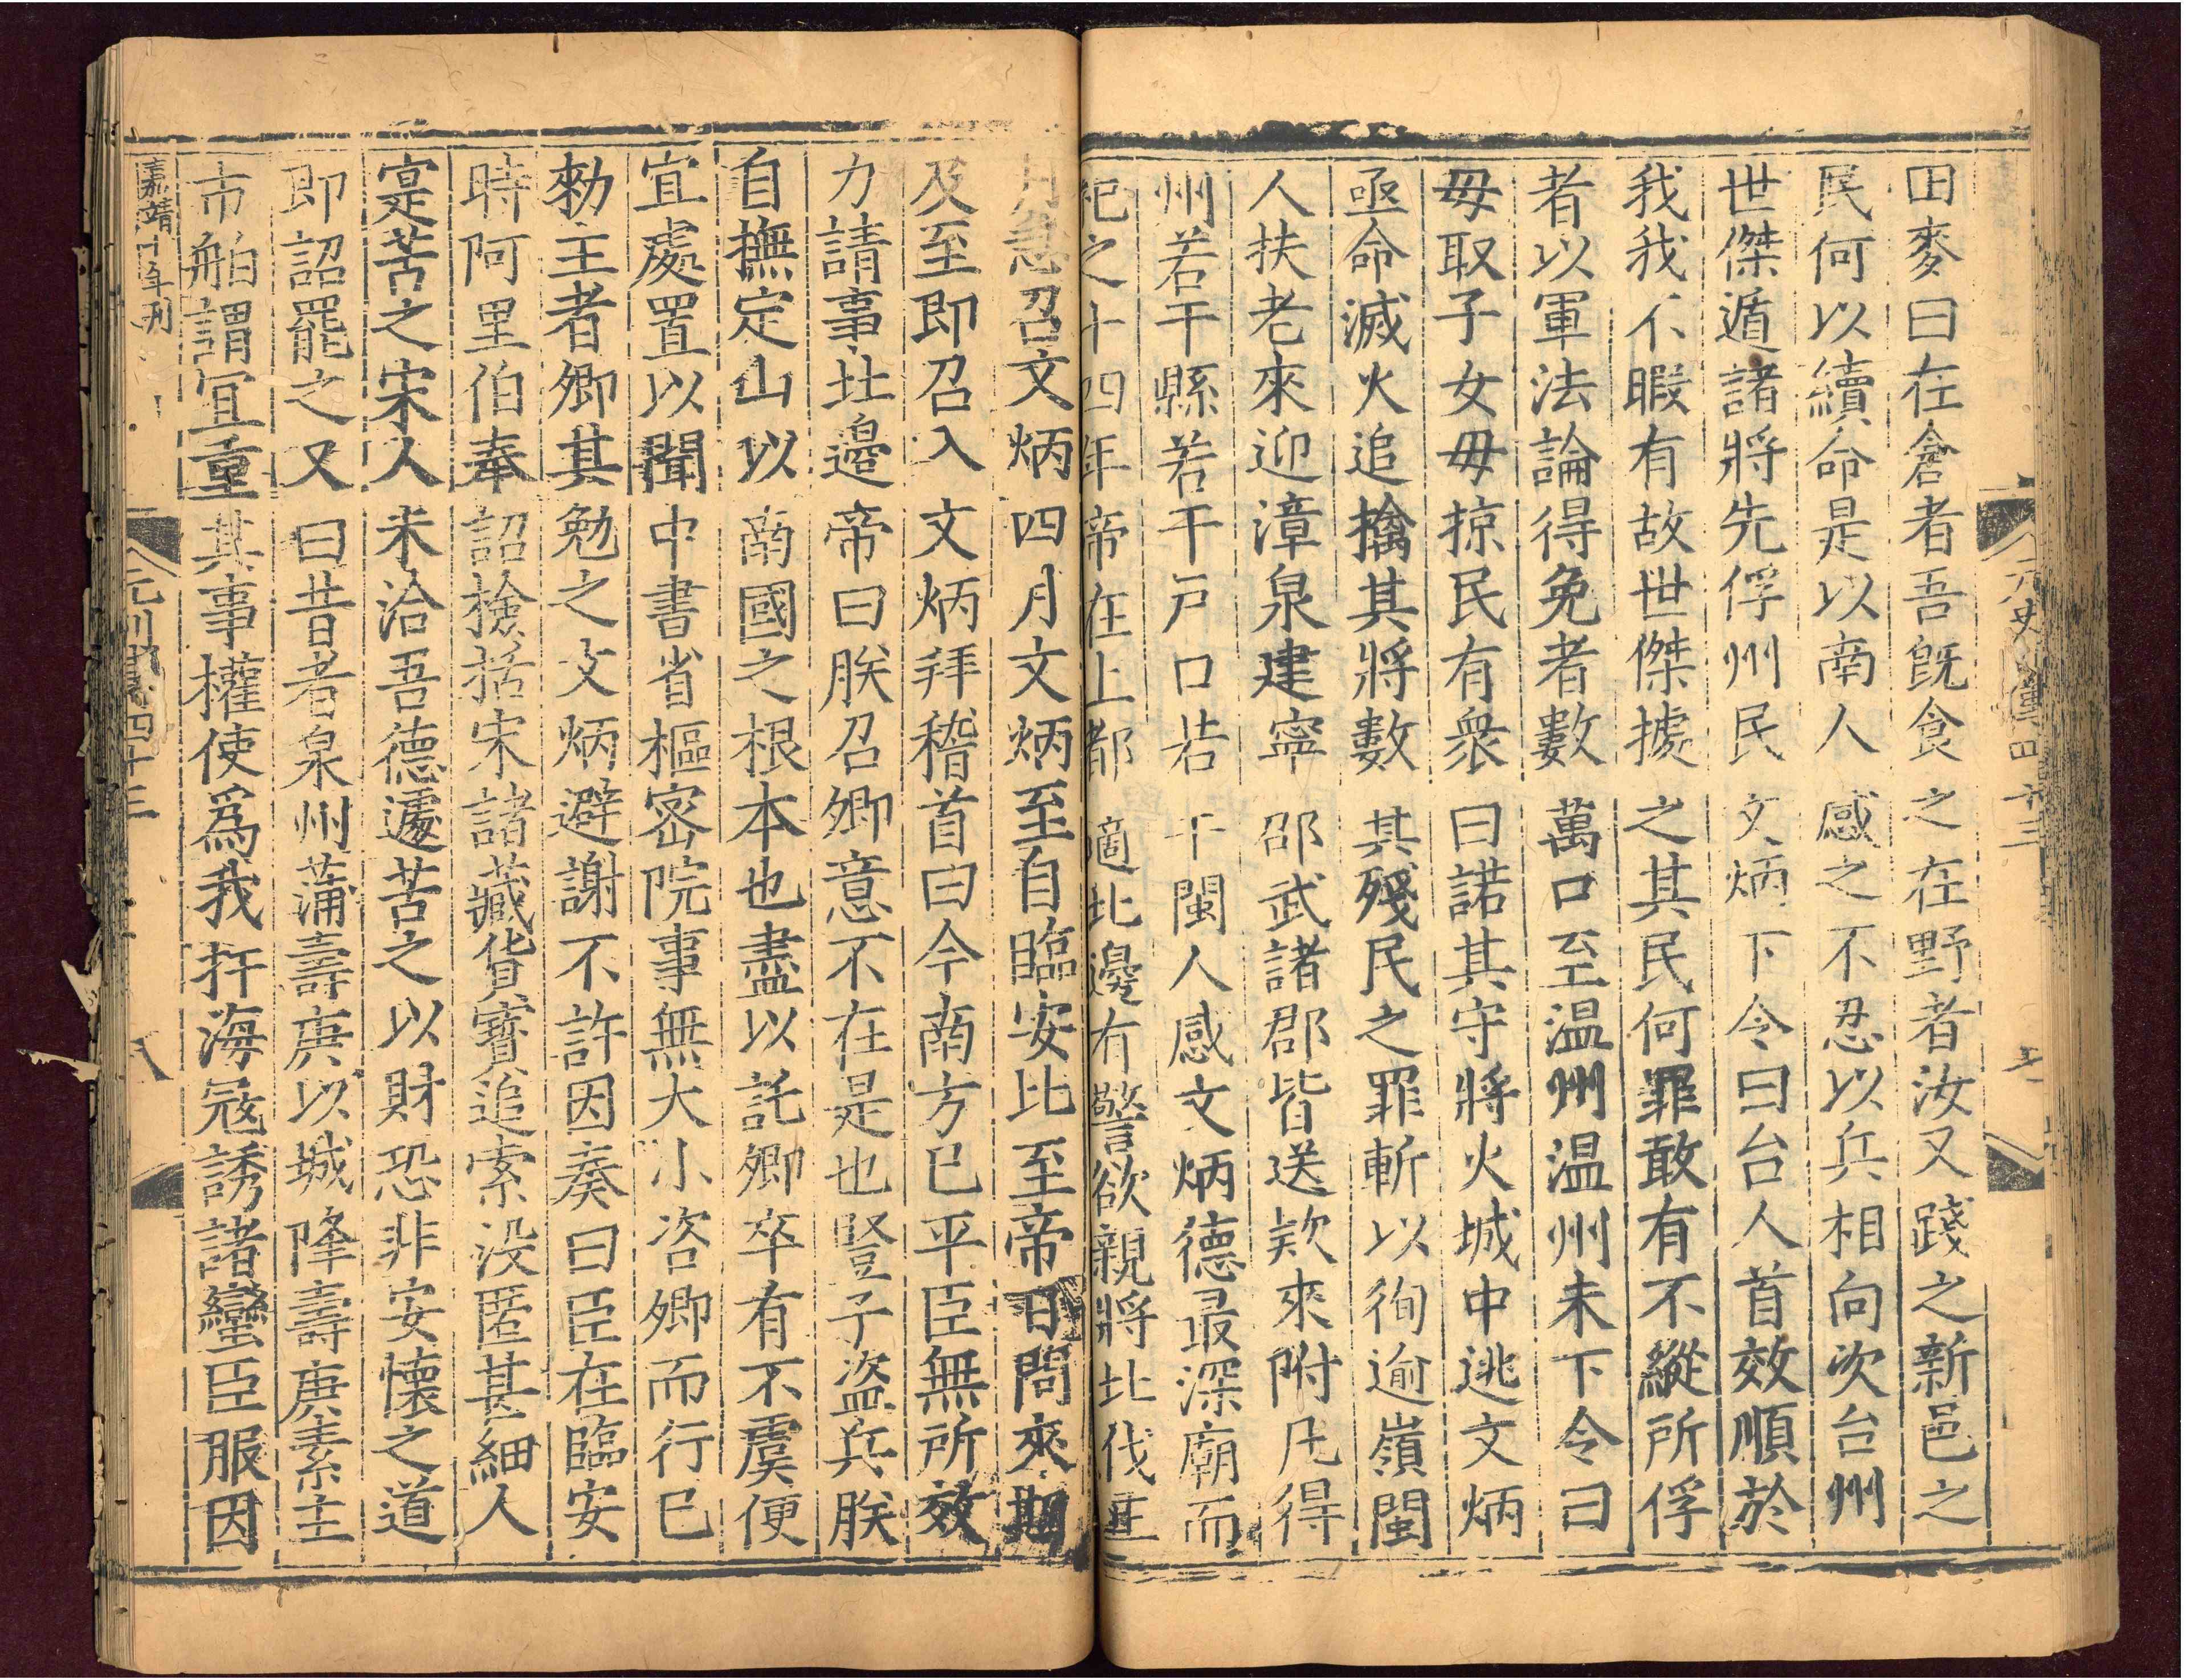 田麥曰在倉者吾既食之在野者汝又踐之新邑之
民何以續命是以南人感之不忍以兵相向次台州
世傑遁諸將先俘州民文炳下令曰台人首效順於
我我不暇有故世傑據之其民何罪敢有不縱所俘
者以軍法論得免者數萬口至温州温州未下令曰
毋取子女毋掠民有衆曰諾其守將火城中逃文炳
亟命滅火追擒其將數其殘民之罪斬以徇逾嶺閩
人扶老來迎漳泉建寧邵武諸郡皆送欵來附凡得
州若干縣若干戸口若干閩人感文炳德最深廟而
祀之十四年帝在上都適北邊有警欲親將北伐正
月急召文炳四月文炳至自臨安比至帝日問來期
及至即召入文炳拜稽首曰今南方已平臣無所效
力請事北邊帝曰朕召卿意不在是也豎子盗兵朕
自撫定山以南國之根本也盡以託卿卒有不虞便
宜處置以聞中書省樞密院事無大小咨卿而行已
勑王者卿其勉之文炳避謝不許因奏曰臣在臨安
時阿里伯奉詔檢括宋諸藏貨寳追索没匿甚細人
寔苦之宋人未洽吾德遽苦之以財恐非安懷之道
即詔罷之又曰昔者泉州蒲壽庚以城降壽庚素主
市舶謂宜重其事權使爲我扞海冦誘諸蠻臣服因
嘉靖十年刊
元史列傳四十三
八
元史列傳四十三
七